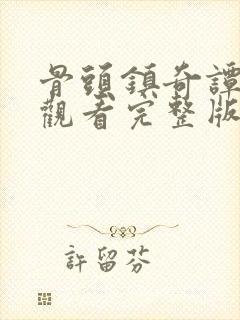 骨頭鎮奇譚
觀看完整版
許留芬